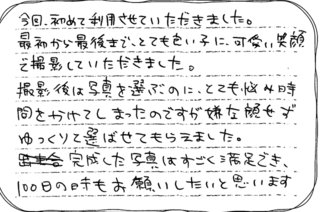 今回、初めて利用させていただきました。
最初から最後まで、とても良い子に、可愛い笑顔
で撮影していただきました。
撮影後は写真を選ぶのに、とても悩み時
間をかけてしまったのですが嫌な顔せず
ゆっくりと選ばせてもらえました。
完成した写真はすごく満足でき、
100日の時もお願いしたいと思います